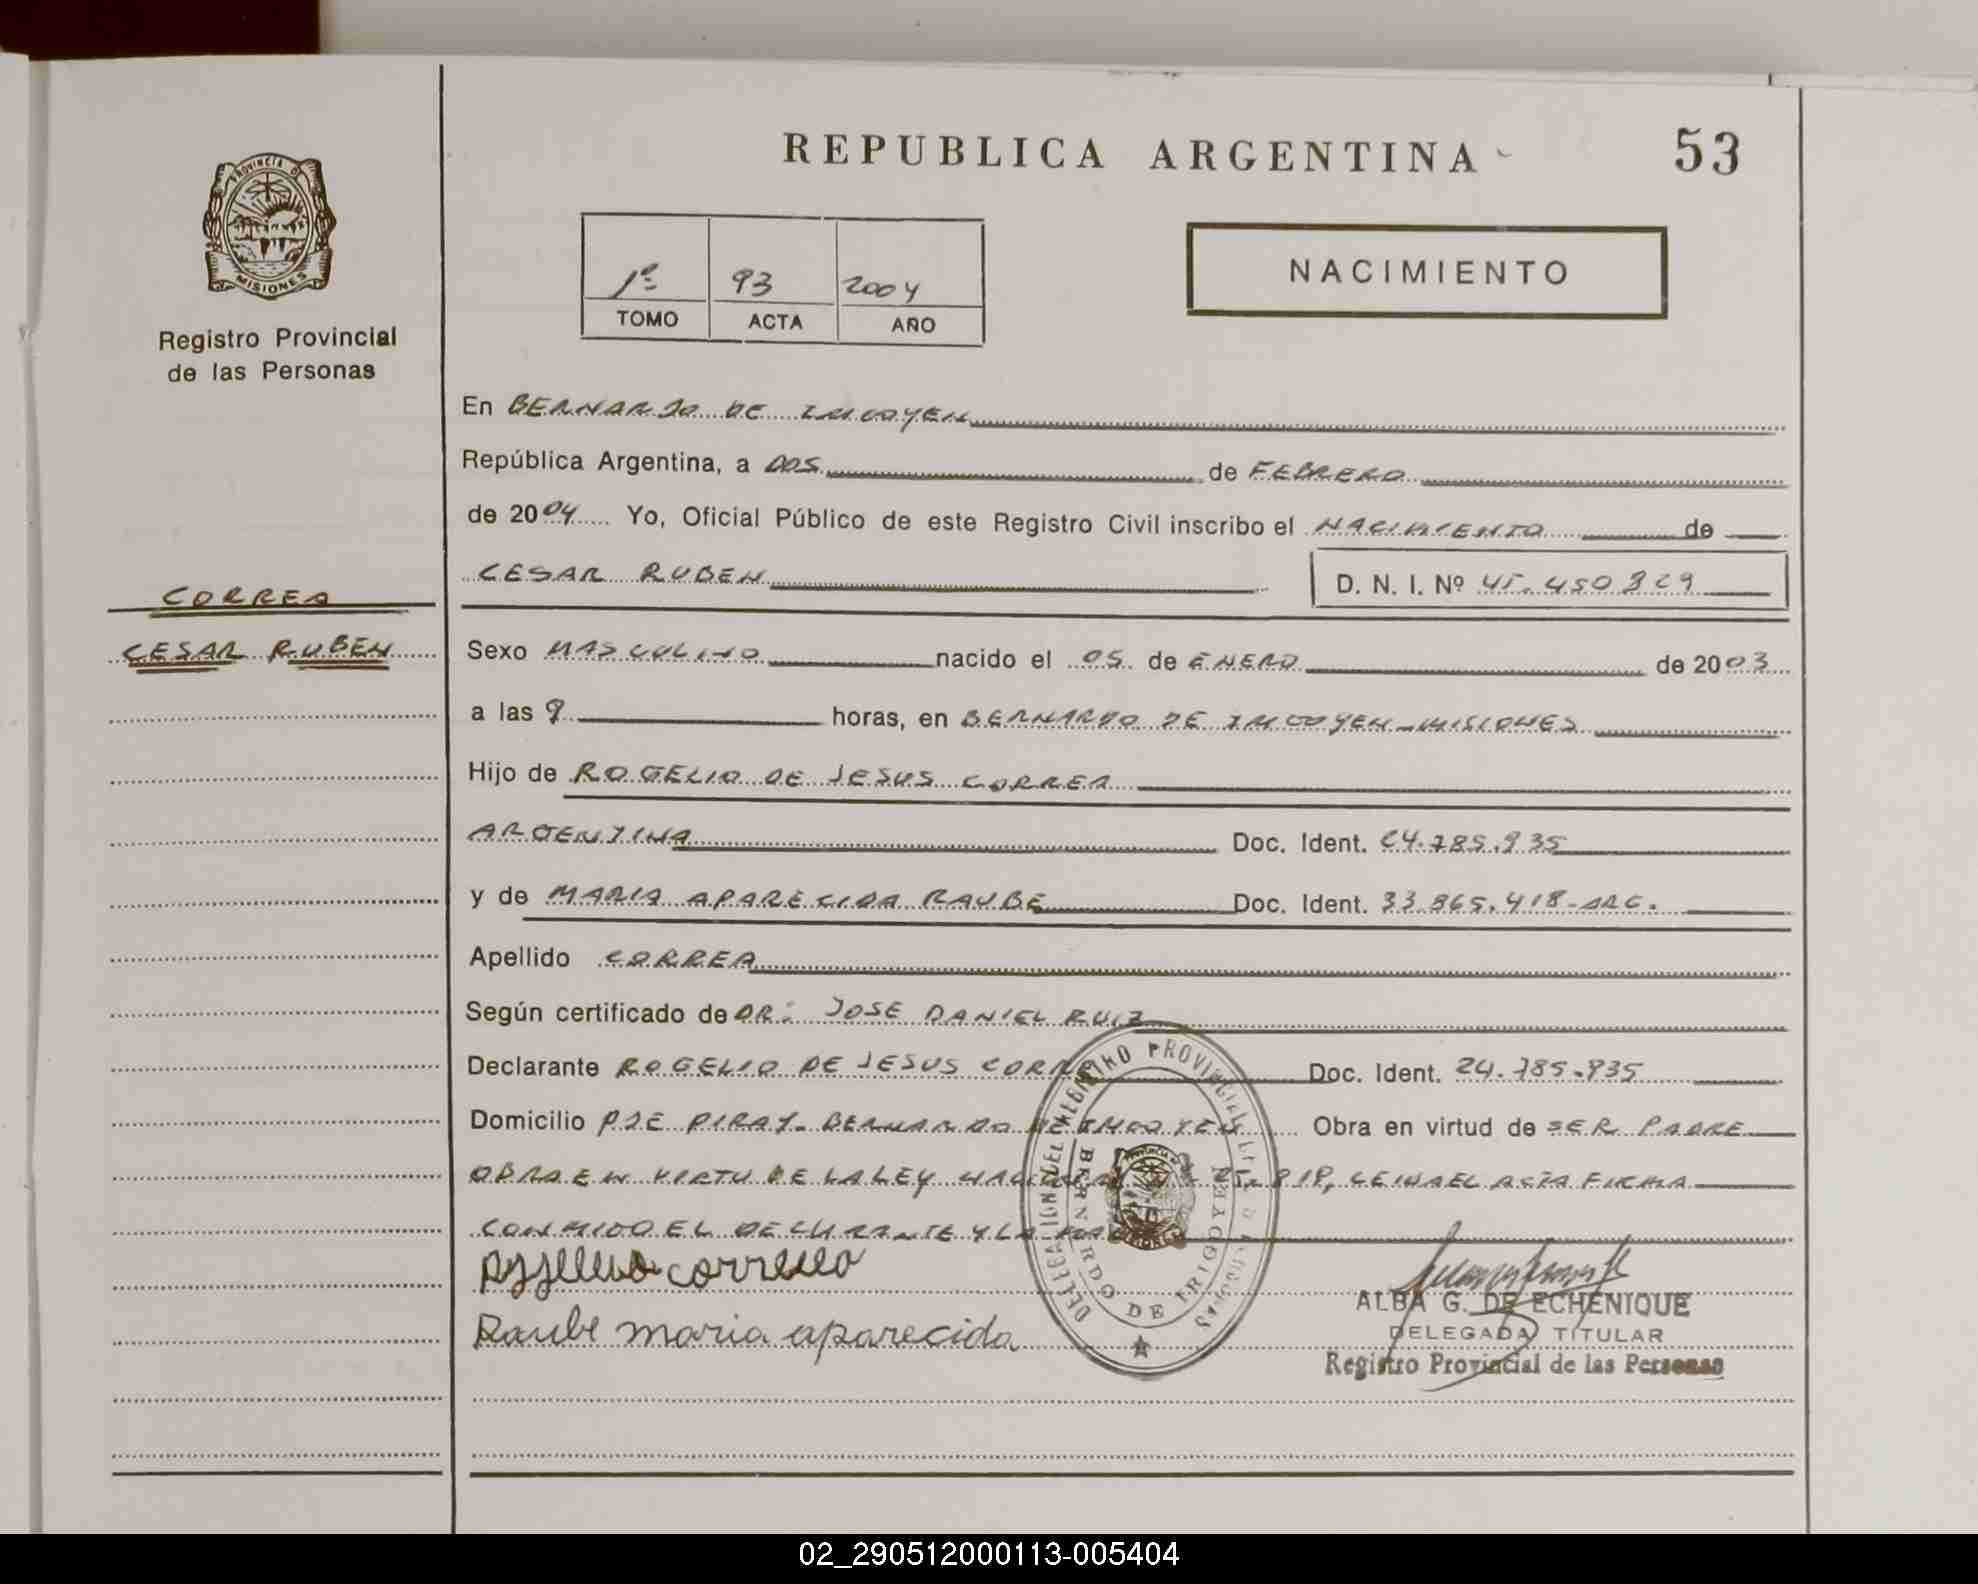 REPUBLICA ARGENTINA
53
PROVINCIA DE
MISIONES
Registro Provincial
de las Personas
1º 93 2004
TOMO ACTA AÑO
NACIMIENTO
En BERNARDO DE IRIGOYEN
República Argentina, a DOS de FEBRERO
de 2004 Yo, Oficial Público de este Registro Civil inscribo el NACIMIENTO de
CESAR RUBEN D. N. I. Nº 45.450.329
CORREA
CESAR RUBEN
Sexo MASCULINO nacido el 05 de ENERO de 2003
a las 9 horas, en BERNARDO DE IRIGOYEN-MISIONES
Hijo de ROGELIO DE JESUS CORREA
ARGENTINA Doc. Ident. 24.785.935
y de MARIA APARECIDA RAUBE Doc. Ident. 33.865.418-ARG.
Apellido CORREA
Según certificado de DR: JOSE DANIEL RUIZ
Declarante ROGELIO DE JESUS CORREA Doc. Ident. 24.785.935
Domicilio PJE PIRAY- BERNARDO DE IRIGOYEN Obra en virtud de SER PADRE
OBRA EN VIRTU DE LA LEY NACIONAL 25.818, LEIDA EL ACTA FIRMA
CONMIGO EL DECLARANTE Y LA MADRE
correa
Raube maria aparecida
DELEGACION DEL REGISTRO PROVINCIAL DE LAS PERSONAS
BERNARDO DE IRIGOYEN
ALBA G. DE ECHENIQUE
DELEGADA TITULAR
Registro Provincial de las Personas
02_290512000113-005404